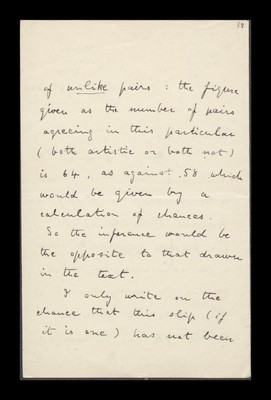 of unlike pairs : the figure
given as the number of pairs
agreeing in this particular
( both artistic or both not )
is 64, as against .58 which
would be given by a
calculation of chances.
So the inference would be
the opposite to that drawn
in the text.
I only write on the
chance that this slip ( if
it is one ) has not been